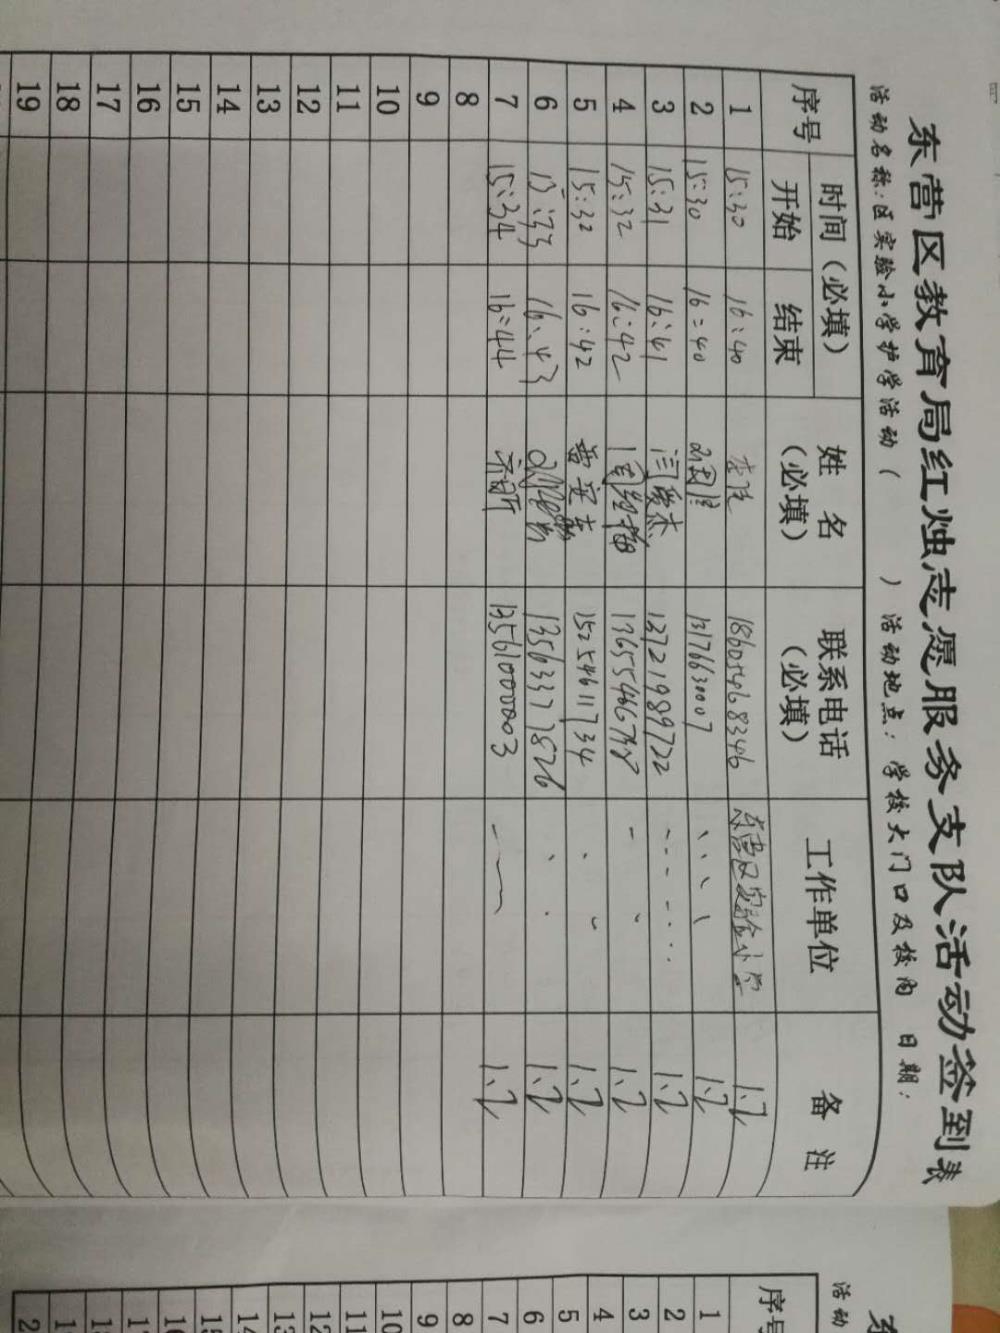 东营区教育局红烛志愿服务支队活动签到表
活动名称：区实验小学护学活动（ ）活动地点：学校大门口及校内 日期：
序号 时间（必填） 姓名（必填） 联系电话（必填） 工作单位 备注
开始 结束
1 15:30 16:40 18605468346 东营区实验小学 1.2
2 15:30 16:40 13176630007 1.2
3 15:31 16:41 闫爱杰 13721989722 1.2
4 15:32 16:42 1.2
5 15:32 16:42 15254611734 1.2
6 15:33 16:43 13563377826 1.2
7 15:34 16:44 13561000003 1.2
8
9
10
11
12
13
14
15
16
17
18
19
活动
序号
1
2
3
4
5
6
7
8
9
10
11
12
13
14